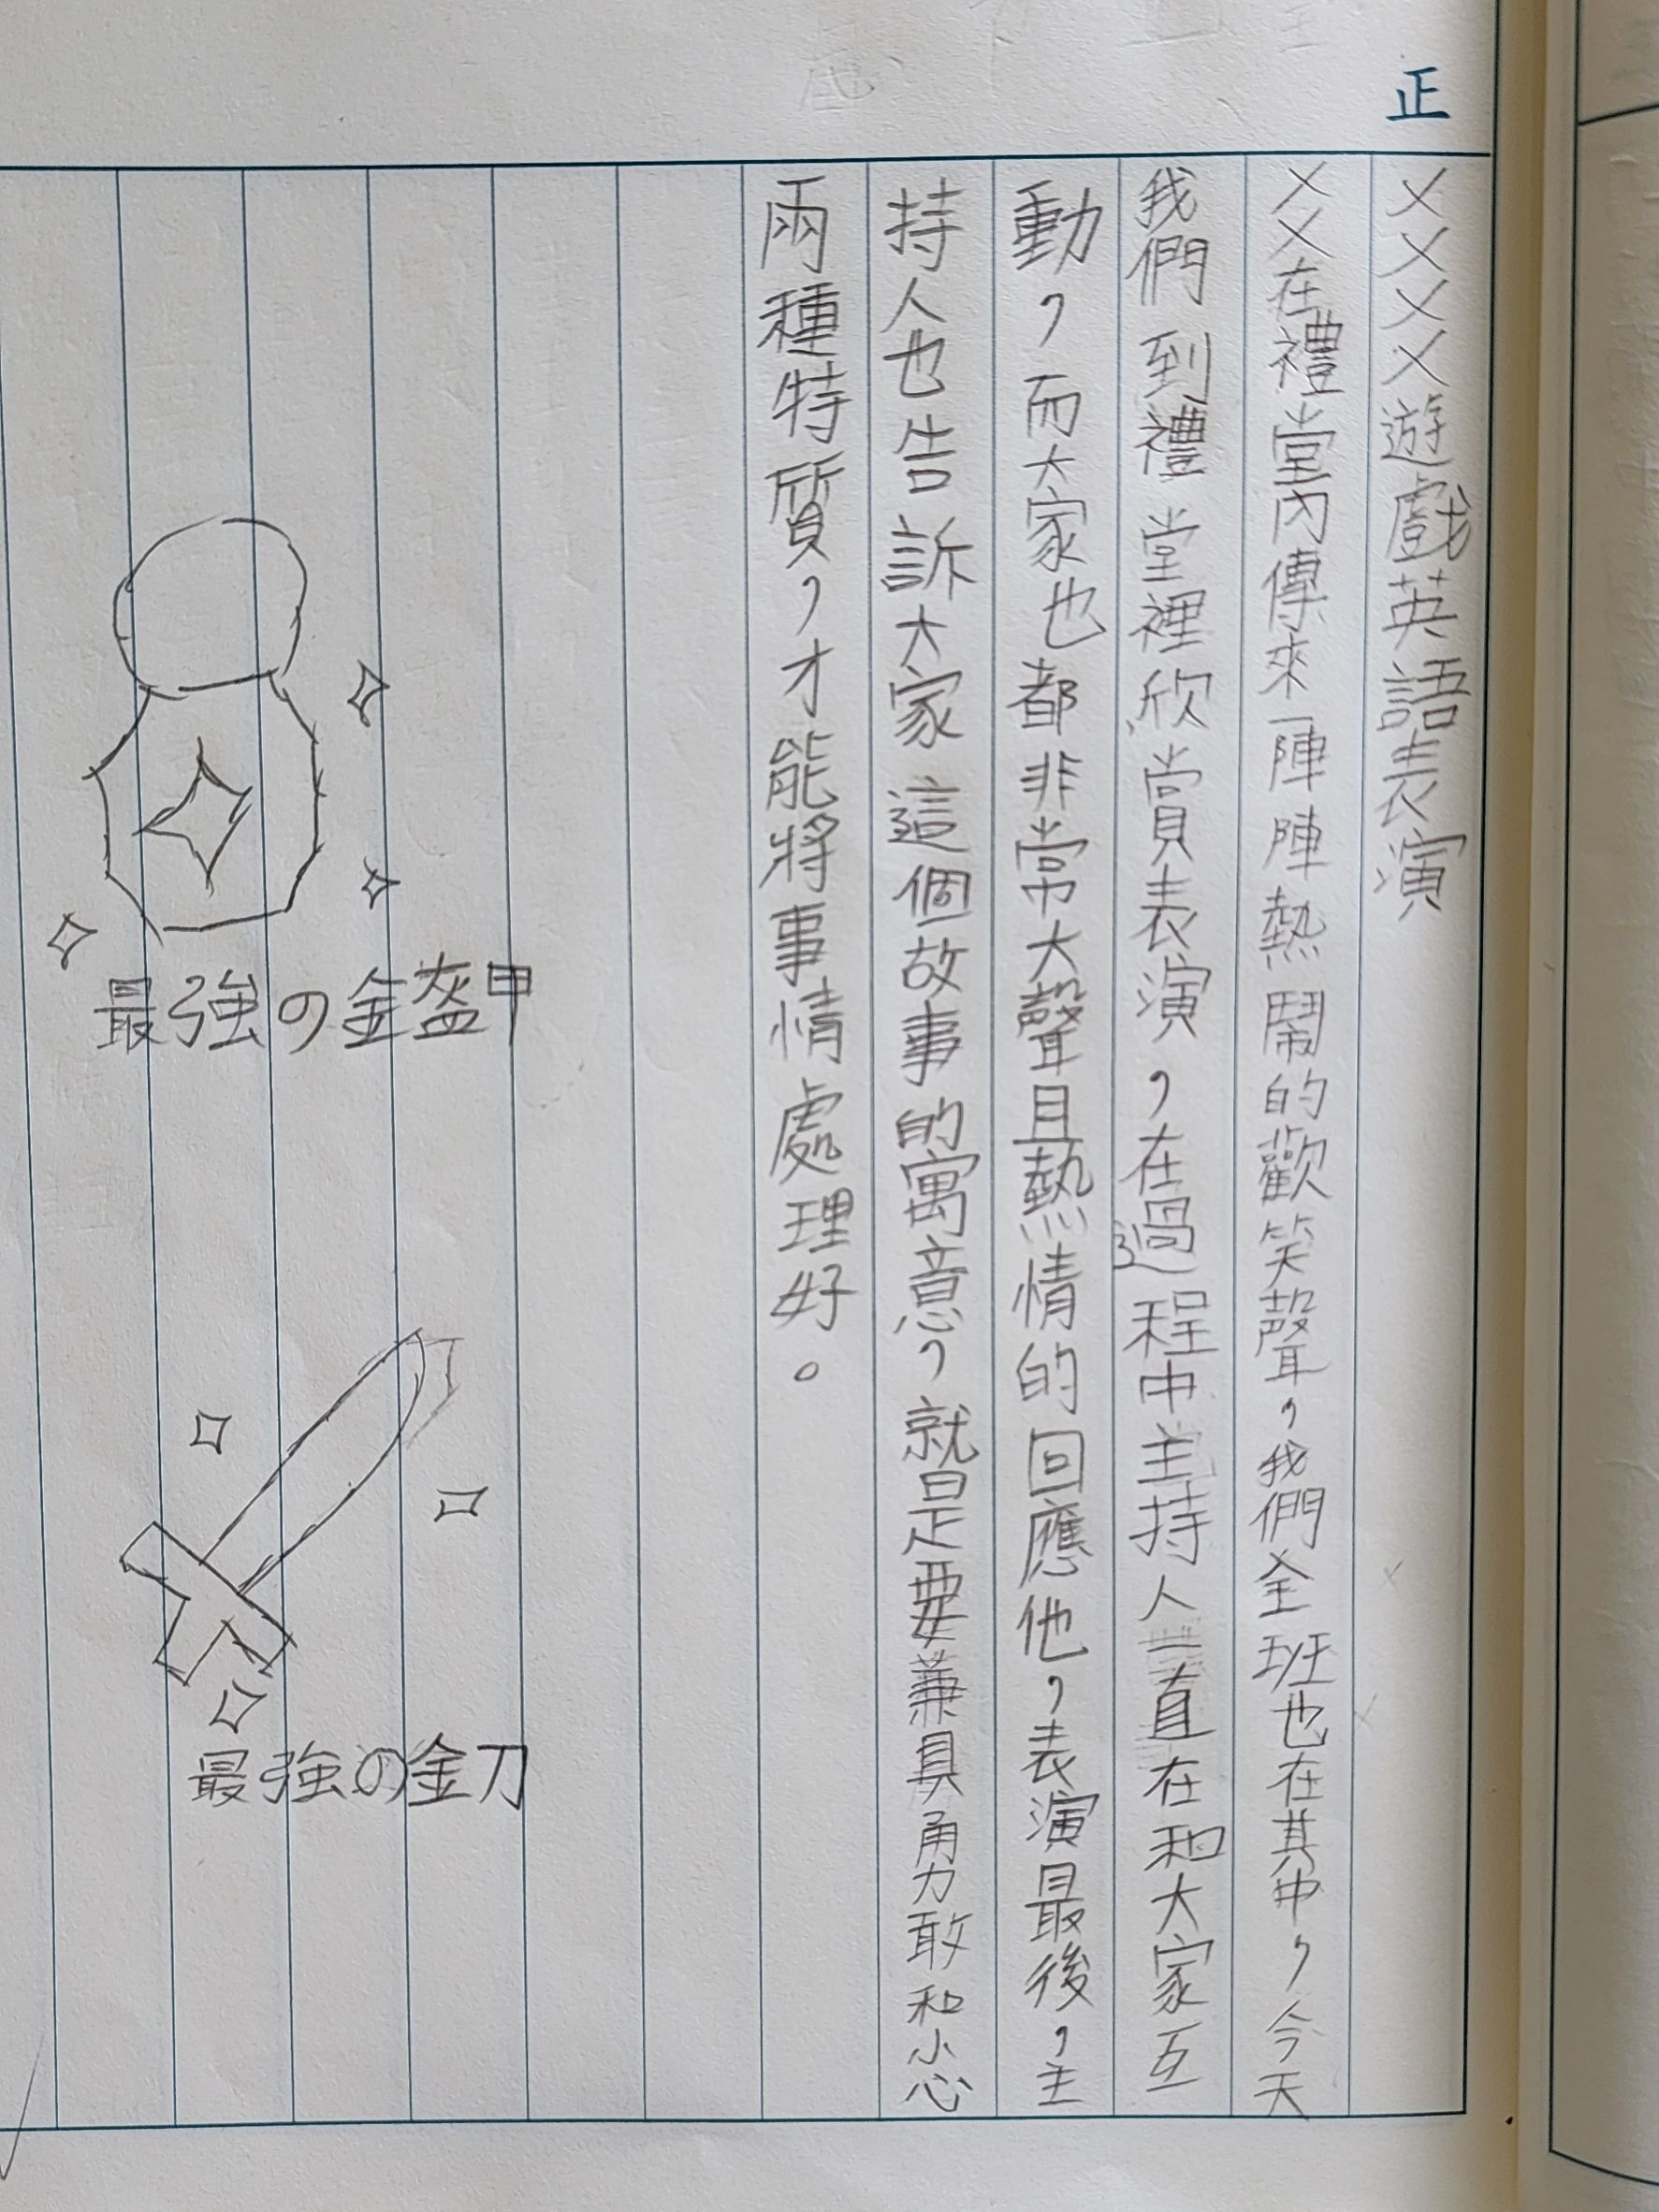 正
ㄨㄨㄨㄨ遊戲英語表演
ㄨㄨ在禮堂內傳來一陣陣熱鬧的歡笑聲，我們全班也在其中，今天
我們到禮堂裡欣賞表演，在過程中主持人一直在和大家互
動，而大家也都非常大聲且熱情的回應他，表演最後，主
持人也告訴大家這個故事的寓意，就是要兼具勇敢和小心
兩種特質，才能將事情處理好。
最強の金盔甲
最強の金刀